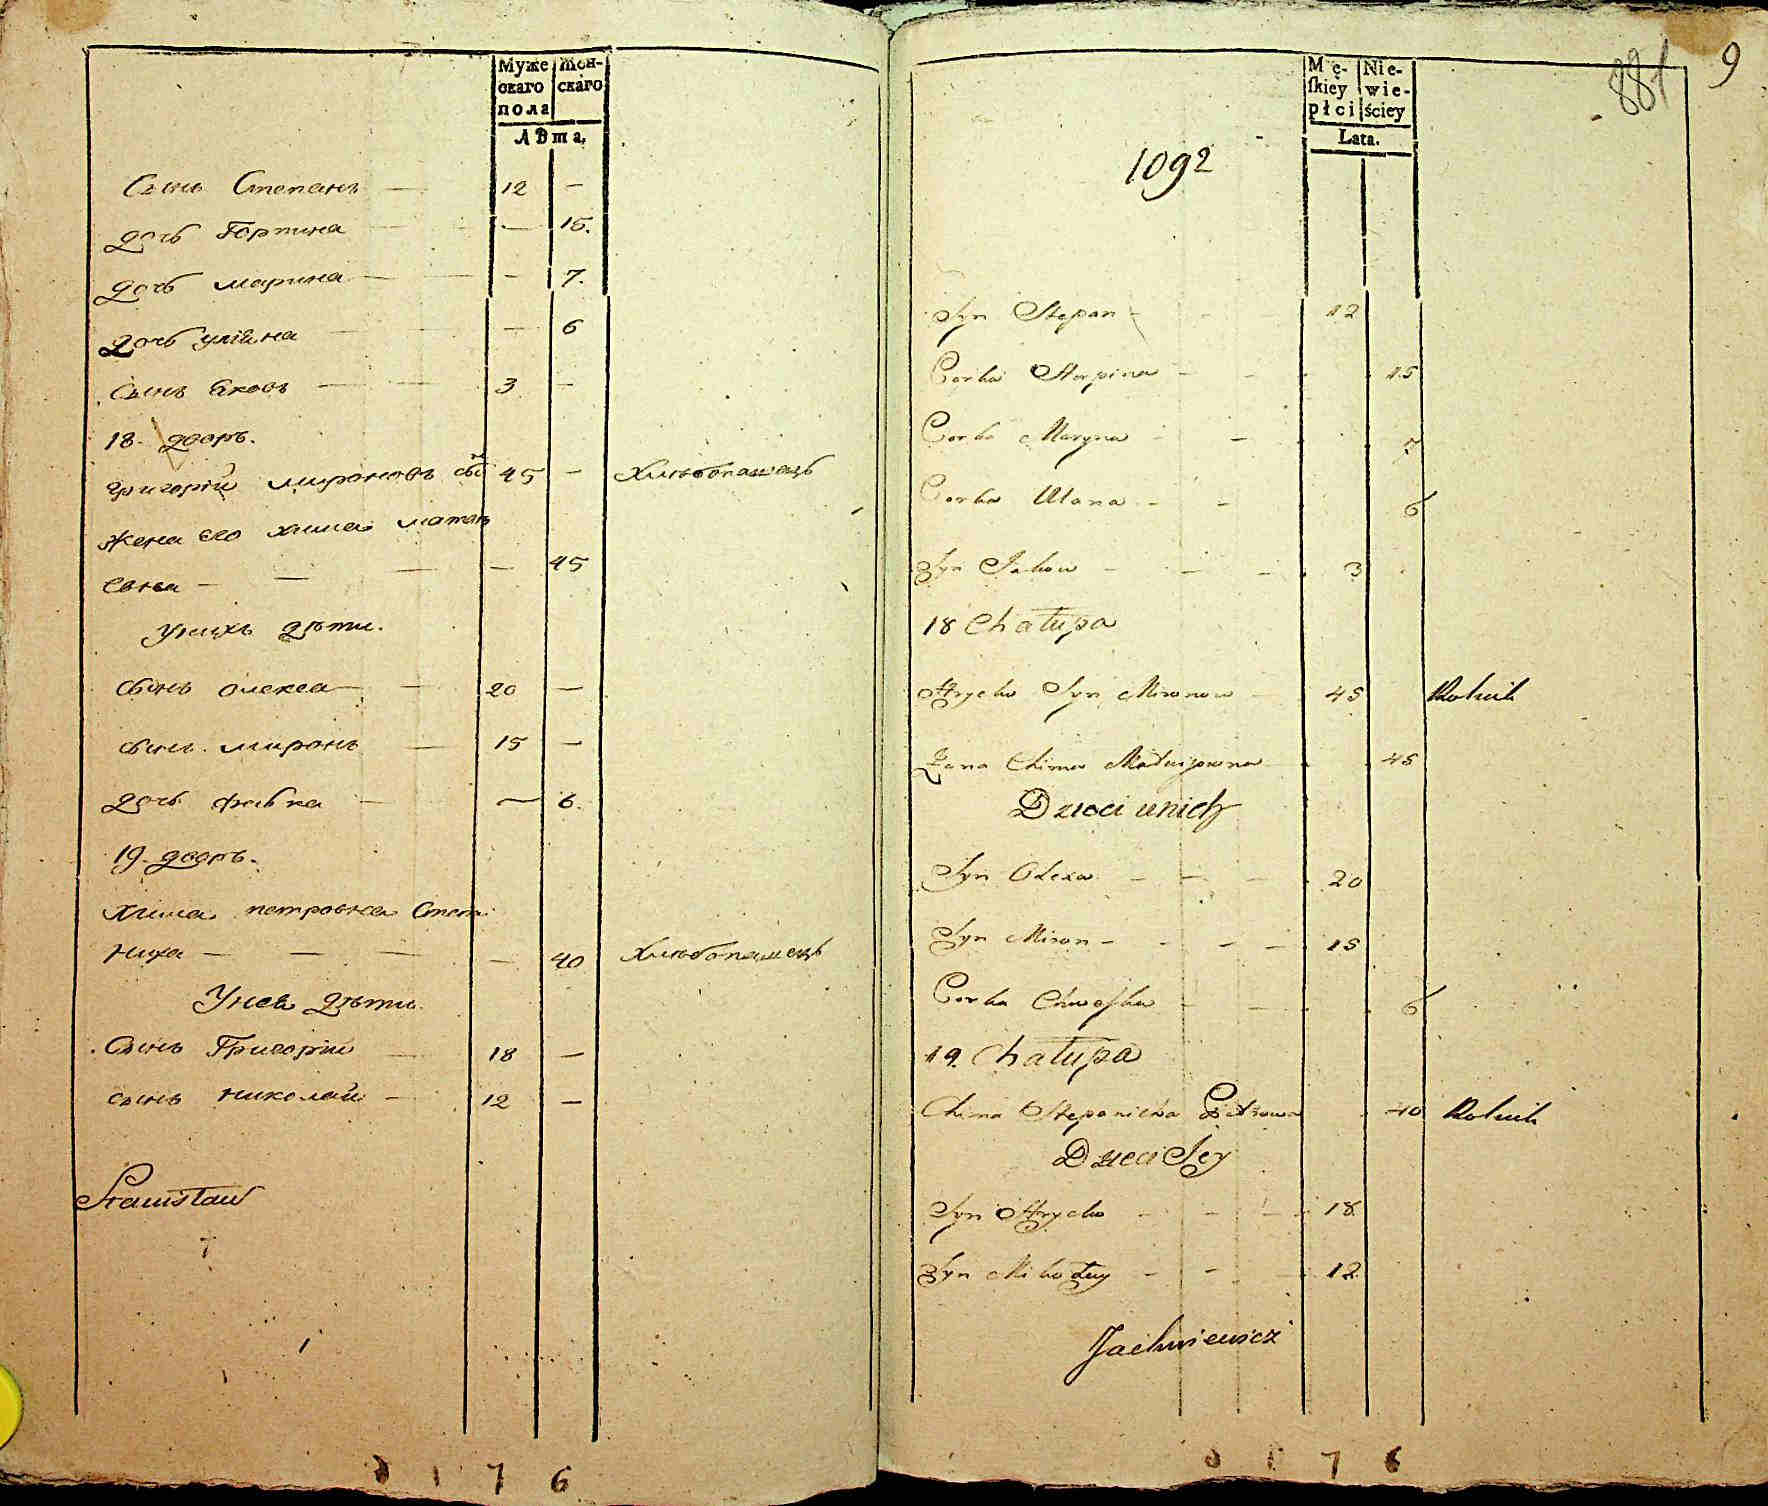 Муже
скаго
пола
Жен-
скаго
Лѣта.
Сынъ Степанъ — 12 —
дочь Горпина — 15.
дочь марина — 7.
дочь уліана — 6
Сынъ Яковъ — 3 —
18. дворъ.
григорій мироновъ сы͠ 45 — Хлѣбопашецъ
жена его хима матвѣ
евна — 45
Унихъ дѣти.
сынъ олекса — 20 —
сынъ миронъ — 15 —
дочь февка — 6.
19. дворъ.
Хима петровна Степа
ниха — 40 Хлѣбопашецъ
Унея дѣти
Сынъ Григорій — 18 —
сынъ николай — 12 —
Stanisław
0 1 7 6
9
881
Mę-
skiey
płci
Nie-
wie-
ściey
Lata.
1092
Syn Stepan - 12
Corka Horpina - 15
Corka Maryna - 7
Corka Ulana - 6
Syn Jakow - 3
18 Chałupa
Hrycko Syn Mironow 45 Rolnik
Żona Chima Matwijowna 45
Dzieci unich
Syn Olexa - 20
Syn Miron - 15
Corka Chweśka - 6
19. Chałupa
Chima Stepanicha Piotrowa 40 Rolnik
Dzieci Jey
Syn Hrycko - 18
Syn Mikołay - 12
Jachniewicz
0 1 7 6